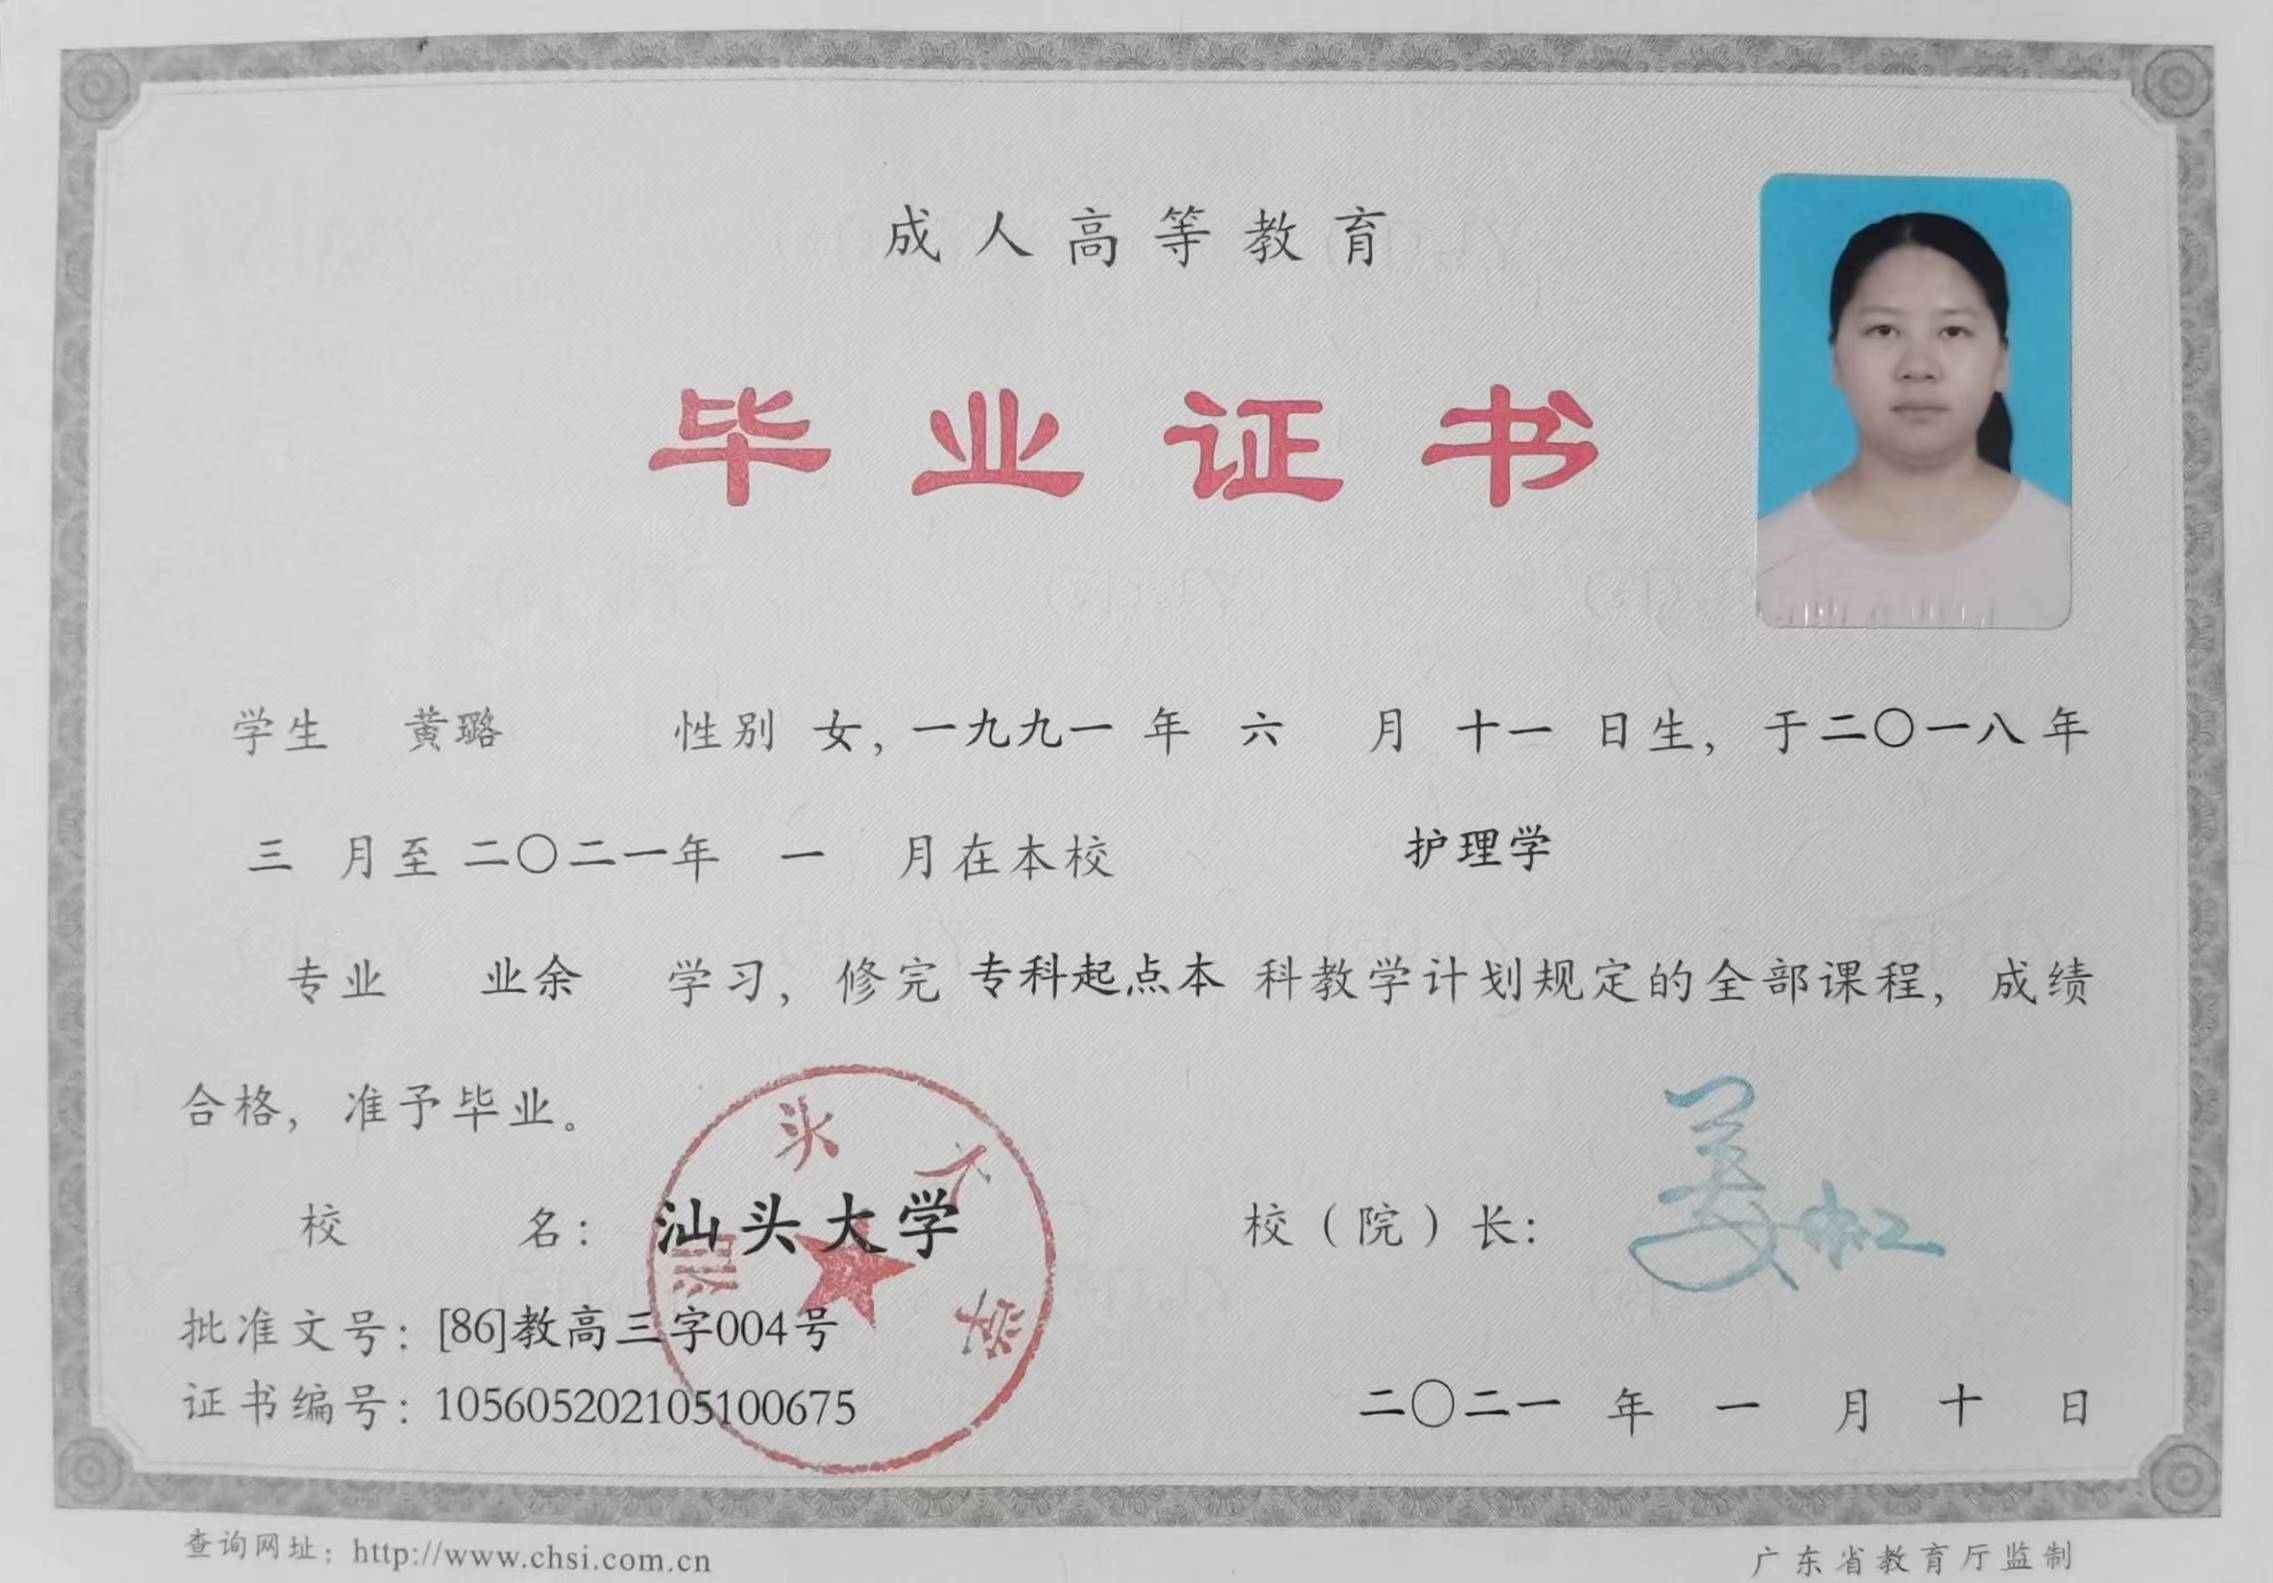 成人高等教育
毕业证书
学生 黄璐 性别 女，一九九一 年 六 月 十一 日生，于二〇一八年
三 月至 二〇二一年 一 月在本校 护理学
专业 业余 学习，修完 专科起点本 科教学计划规定的全部课程，成绩
合格，准予毕业。
校 名：汕头大学 校（院）长：
批准文号：[86]教高三字004号
证书编号：105605202105100675
二〇二一 年 一 月 十 日
查询网址：http://www.chsi.com.cn
广东省教育厅监制